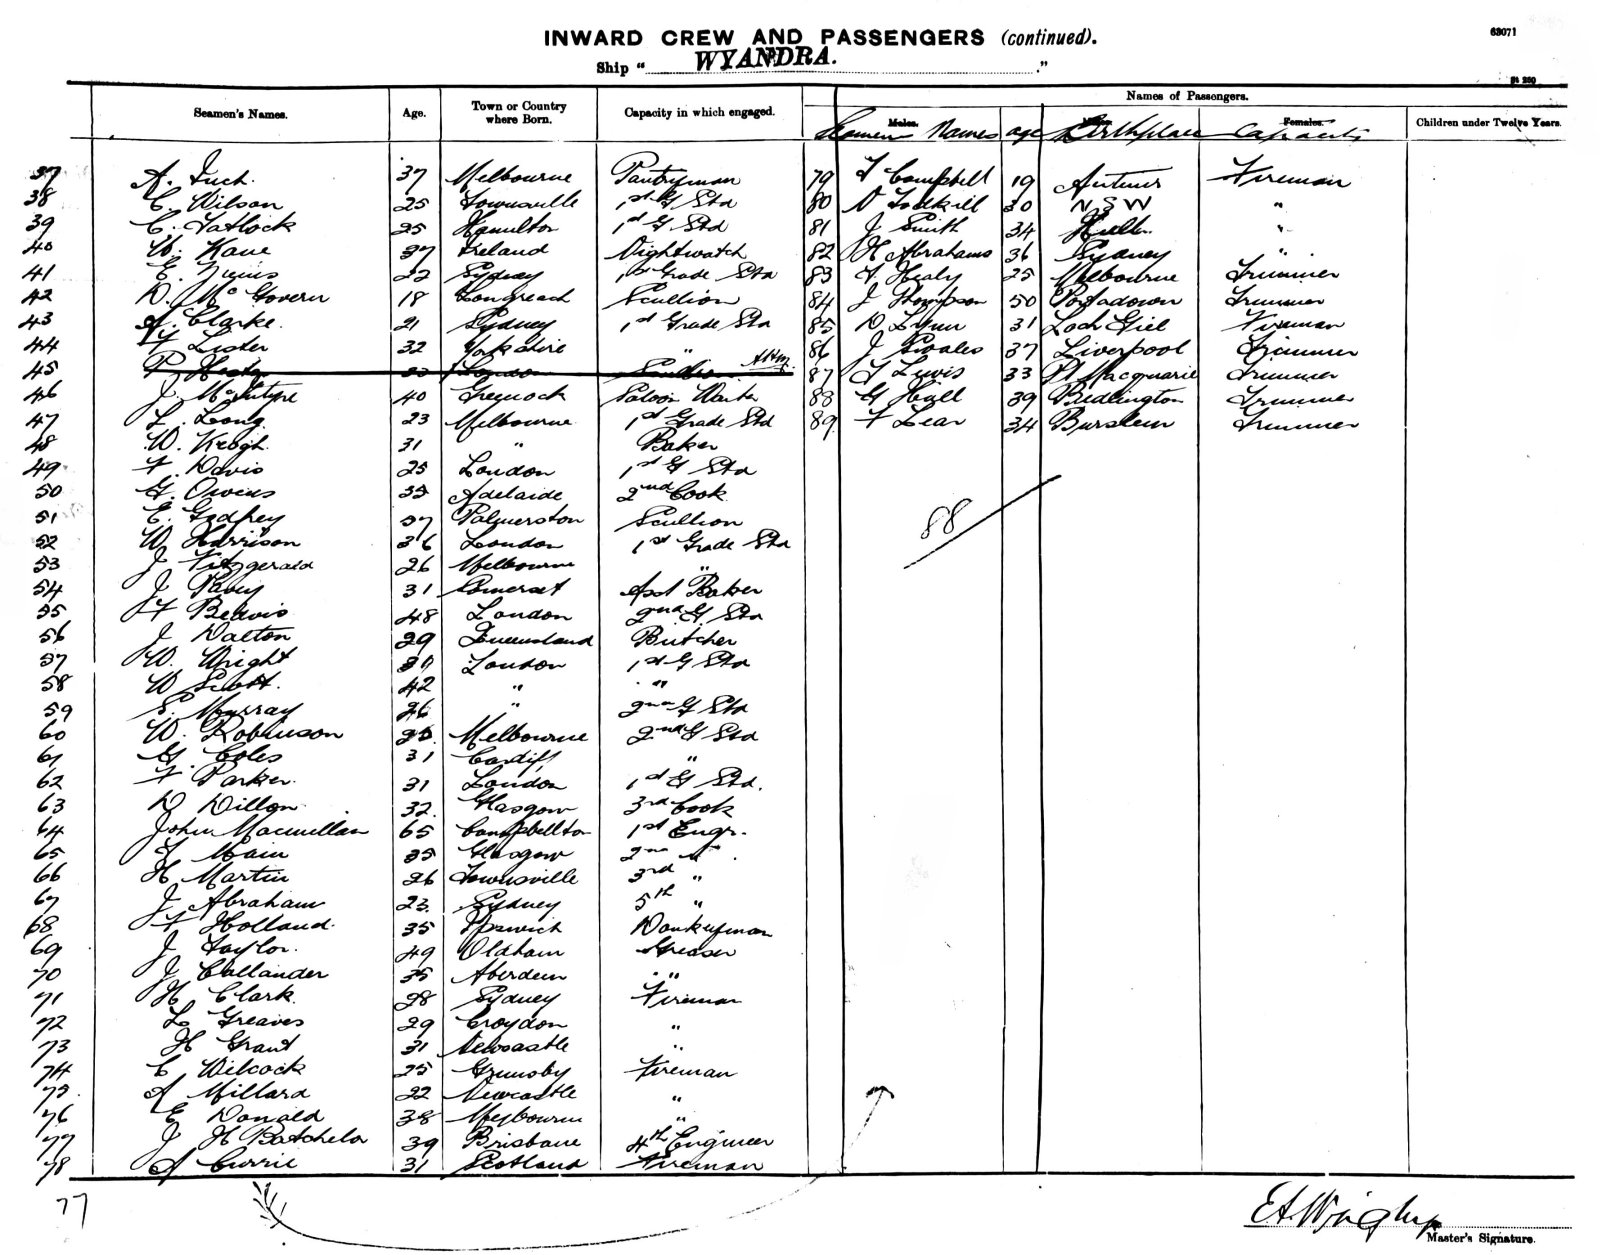 INWARD CREW AND PASSENGERS (continued).
63071
Ship " WYANDRA. "
Seamen's Names. Age. Town or Country where Born. Capacity in which engaged. Names of Passengers.
Males. Females. Children under Twelve Years.
Seamen Names age Birthplace Capacity
37 A. Tuch. 37 Melbourne Pantryman
38 C. Wilson 25 Townsville 1st G Std
39 C. Tatlock 25 Hamilton 1st G Std
40 W. Kane 37 Ireland Nightwatch
41 E. 22 Sydney 1st Grade Std
42 D. McGovern 18 Longreach Scullion
43 A. Clarke. 21 Sydney 1st Grade Std
44 Lister 32 Yorkshire "
45 London
46 J McIntyre 40 Greenock Saloon Waiter
47 L. Long 23 Melbourne 1st Grade Std
48 W. Keogh. 31 " Baker
49 F. Davis 25 London 1st G Std
50 G. Owens 35 Adelaide 2nd Cook
51 E. Godfrey 37 Palmerston Scullion
52 W Harrison 36 London 1st Grade Std
53 J Fitzgerald 26 Melbourne "
54 J Pavey 31 Somerset Asst Baker
55 F Beavis 48 London 2nd G Std
56 J Dalton 29 Queensland Butcher
57 W. Wright London 1st G Std
58 W Scott. 42 " "
59 S. Murray 26 " 2nd G Std
60 W. Robinson Melbourne 2nd G Std
61 G. Coles 31 Cardiff "
62 F Parker. 31 London 1st G Std.
63 D Dillon 32. Glasgow 3rd Cook
64 John Macmillan 65 Campbellton 1st Engr.
65 Main 35 Glasgow 2nd "
66 H Martin 26 Townsville 3rd "
67 J Abraham 23. Sydney 5th "
68 F Holland. 35 Ipswich Donkeyman
69 J Taylor. 49 Oldham Greaser
70 J Callander 35 Aberdeen "
71 H Clark. 28 Sydney Fireman
72 L Greaves 29 Croydon "
73 H Grant 31 Newcastle "
74 C Wilcock 25 Grimsby Fireman
75. A Millard 22 Newcastle "
76 E Donald 38 Melbourne "
77 J H Batchelor 39 Brisbane 4th Engineer
78 A Currie 31 Scotland Fireman
79 Campbell 19 Fireman
80 30 NSW "
81 J Smith 34 Hull "
82 H Abrahams 36 Sydney "
83 Healy 25 Melbourne Trimmer
84 J Thompson 50 Portadown Trimmer
85 D Lynn 31 Loch Giel Fireman
86 J Swales 37 Liverpool Trimmer
87 Lewis 33 Pt Macquarie Trimmer
88 G Hall 39 Bedlington Trimmer
89 F Lear 34 Burslem Trimmer
88
77
Master's Signature.